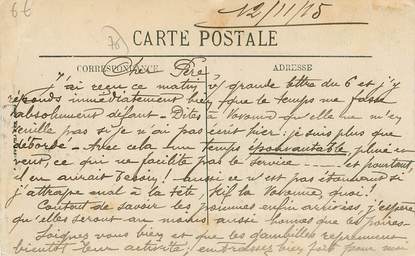 66
12/11/15
78
CARTE POSTALE
CORRESPONDANCE
ADRESSE
Cher Père
J'ai reçu ce matin, v/ grande lettre du 6 et j'y
réponds immédiatement bien que le temps me fasse
absolument défaut - Dites à Vovonne qu'elle ne m'en
veuille pas si je n'ai pas écrit hier : je suis plus que
débordé - Avec cela un temps épouvantable, pluie et
vent, ce qui ne facilite pas le service et pourtant,
il en aurait besoin! Aussi ce n'est pas étonnant si
j'attrape mal à la tête, quoi!
Content de savoir les pommes enfin arrivées, j'espère
qu'elles seront au moins aussi bonnes que les poires.
Soignez vous bien et que les reprennent
bientôt leur activité : embrassez bien fort pour moi